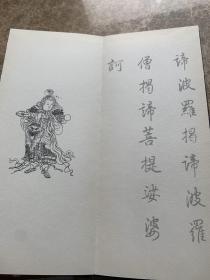 諦波羅揭諦波羅
僧揭諦菩提娑婆
訶